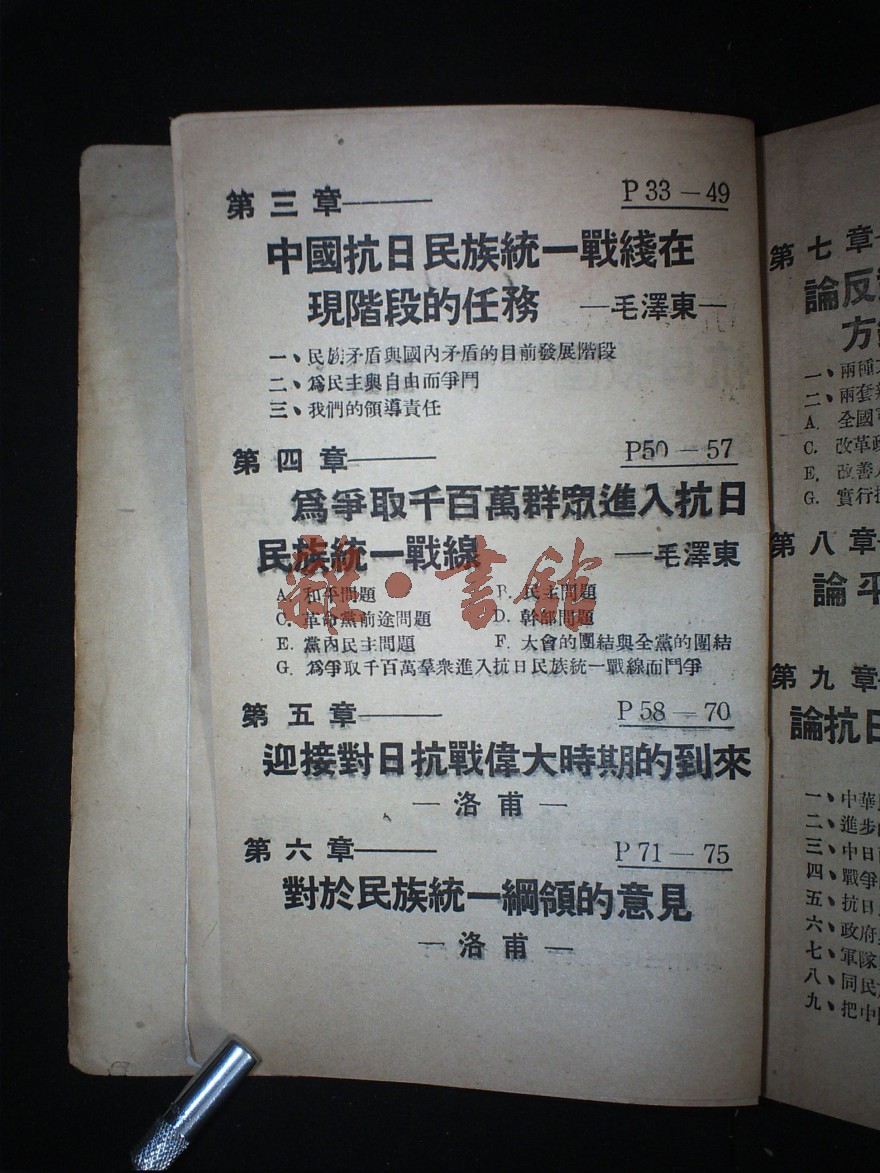 第三章—— P 33 — 49
中國抗日民族統一戰綫在
現階段的任務 —毛澤東—
一、民族矛盾與國內矛盾的目前發展階段
二、爲民主與自由而爭鬥
三、我們的領導責任
第四章—— P50 — 57
爲爭取千百萬群眾進入抗日
民族統一戰線 —毛澤東
A. 和平問題 B. 民主問題
C. 革命黨前途問題 D. 幹部問題
E. 黨內民主問題 F. 大會的團結與全黨的團結
G. 爲爭取千百萬羣衆進入抗日民族統一戰線而鬥爭
第五章—— P 58 — 70
迎接對日抗戰偉大時期的到來
— 洛甫 —
第六章—— P 71 — 75
對於民族統一綱領的意見
— 洛甫 —
雜·書館
第七章
論反
方
一、兩種
二、兩套
A. 全國
C. 改革政
E. 改善
G. 實行
第八章
論平
第九章
論抗日
一、中華
二、進步
三、中日
四、戰爭
五、抗日
六、政府
七、軍隊
八、同民
九、把中